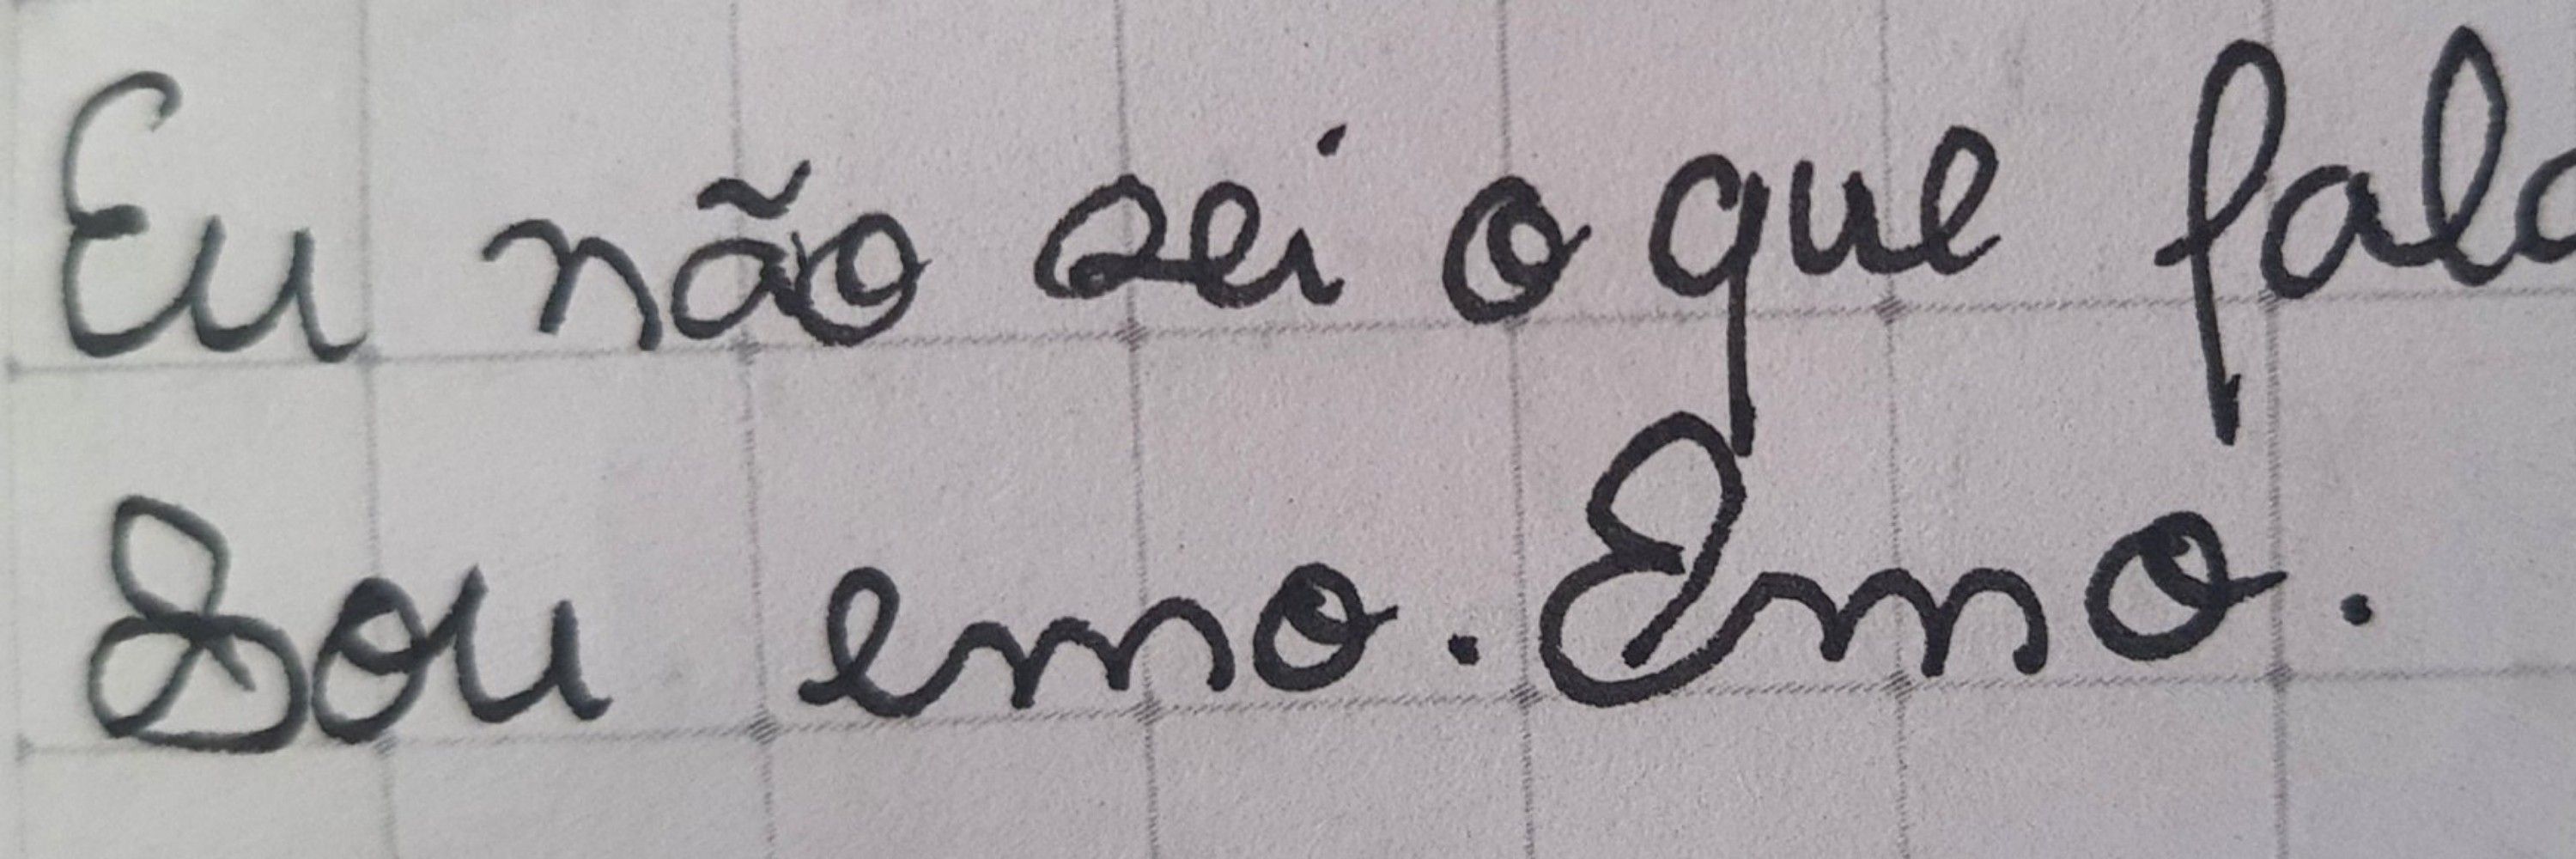 Eu não sei o que fala
Sou emo. Emo.